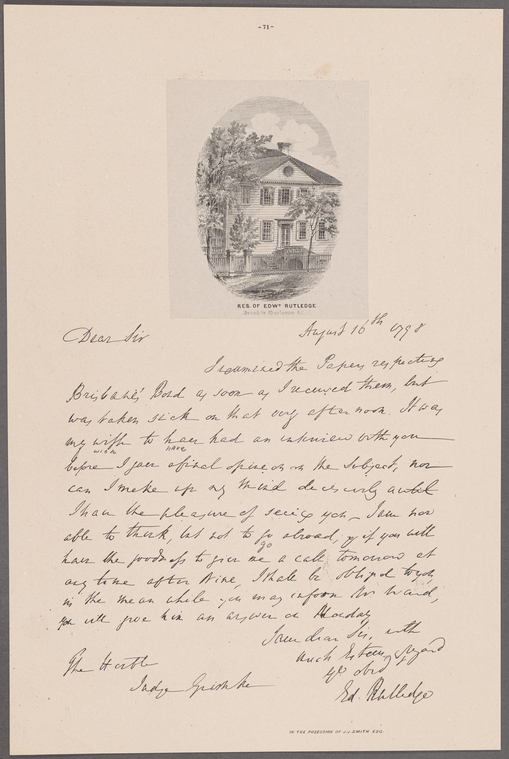 -71-
RES. OF EDWD RUTLEDGE
Broad St Charleston S.C.
August 16th 1798
Dear Sir
I examined the Papers respecting
Brisbane's Bond as soon as I received them, but
was taken sick on that very afternoon. It was
my wish to have had an interview with you
wish have
before I gave a final opinion on the Subject, nor
can I make up my mind decisively until
I have the pleasure of seeing you — I am now
able to think, but not to go abroad, & if you will
go
have the goodness to give me a call tomorrow at
any time after Nine, I shall be obliged to you,
in the mean while you may inform Mr Ward,
you will give him an answer on Monday
I am dear Sir, with
much Esteem & regard
Yr obed
Ed. Rutledge
The Honble
Judge Grimke
IN THE POSESSION OF J.J. SMITH ESQ.